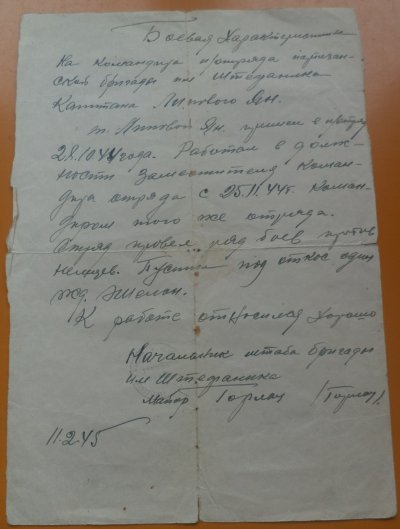 Боевая Характеристика
На командира отряда партизан-
ской бригады им Штефаника
Капитана Липового Ян.
т. Липовой Ян. пришел в отряд
28.10.44 года. Работал в долж-
ности заместителя Коман-
дира отряда с 25.11.44г. Коман-
диром того же отряда.
Отряд провел ряд боев против
немцев. Пустил под откос один
жд. эшелон.
К работе относился Хорошо
Начальник штаба бригады
им Штефаника
Майор Горлач /Горлач/
11.2.45